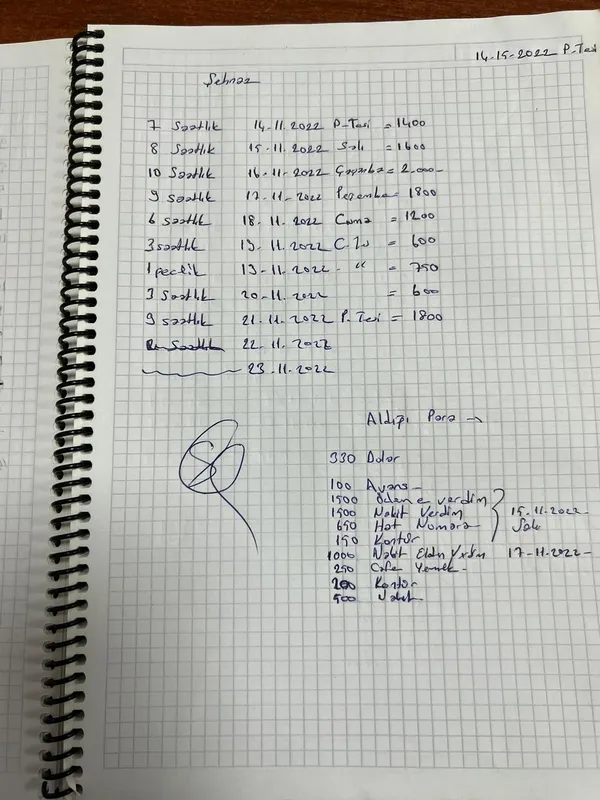 14-15-2022 P-Tesi
Şehnaz
7 Saatlik 14-11.2022 P-Tesi = 1400
8 Saatlik 15-11.2022 Salı = 1600
10 Saatlik 16-11-2022 Çarşamba = 2.000-
9 Saatlik 17-11-2022 Perşembe = 1800
6 saatlik 18-11.2022 Cuma = 1200
3 saatlik 19-11.2022 C. = 600
1 19-11-2022 - " = 750
3 Saatlik 20-11-2022 = 600
9 saatlik 21.11.2022 P.Tesi = 1800
Saatlik 22-11.2022
23.11.2022
Aldığı Para →
330 Dolar
100 Avans -
1500 verdim
1500 Nakit Verdim 15.11.2022-
650 Hat Numara Salı
150 Kontör
1000 Nakit Elden Verdim 17-11-2022-
250 Cafe Yemek -
200 Kontör
500 Nakit